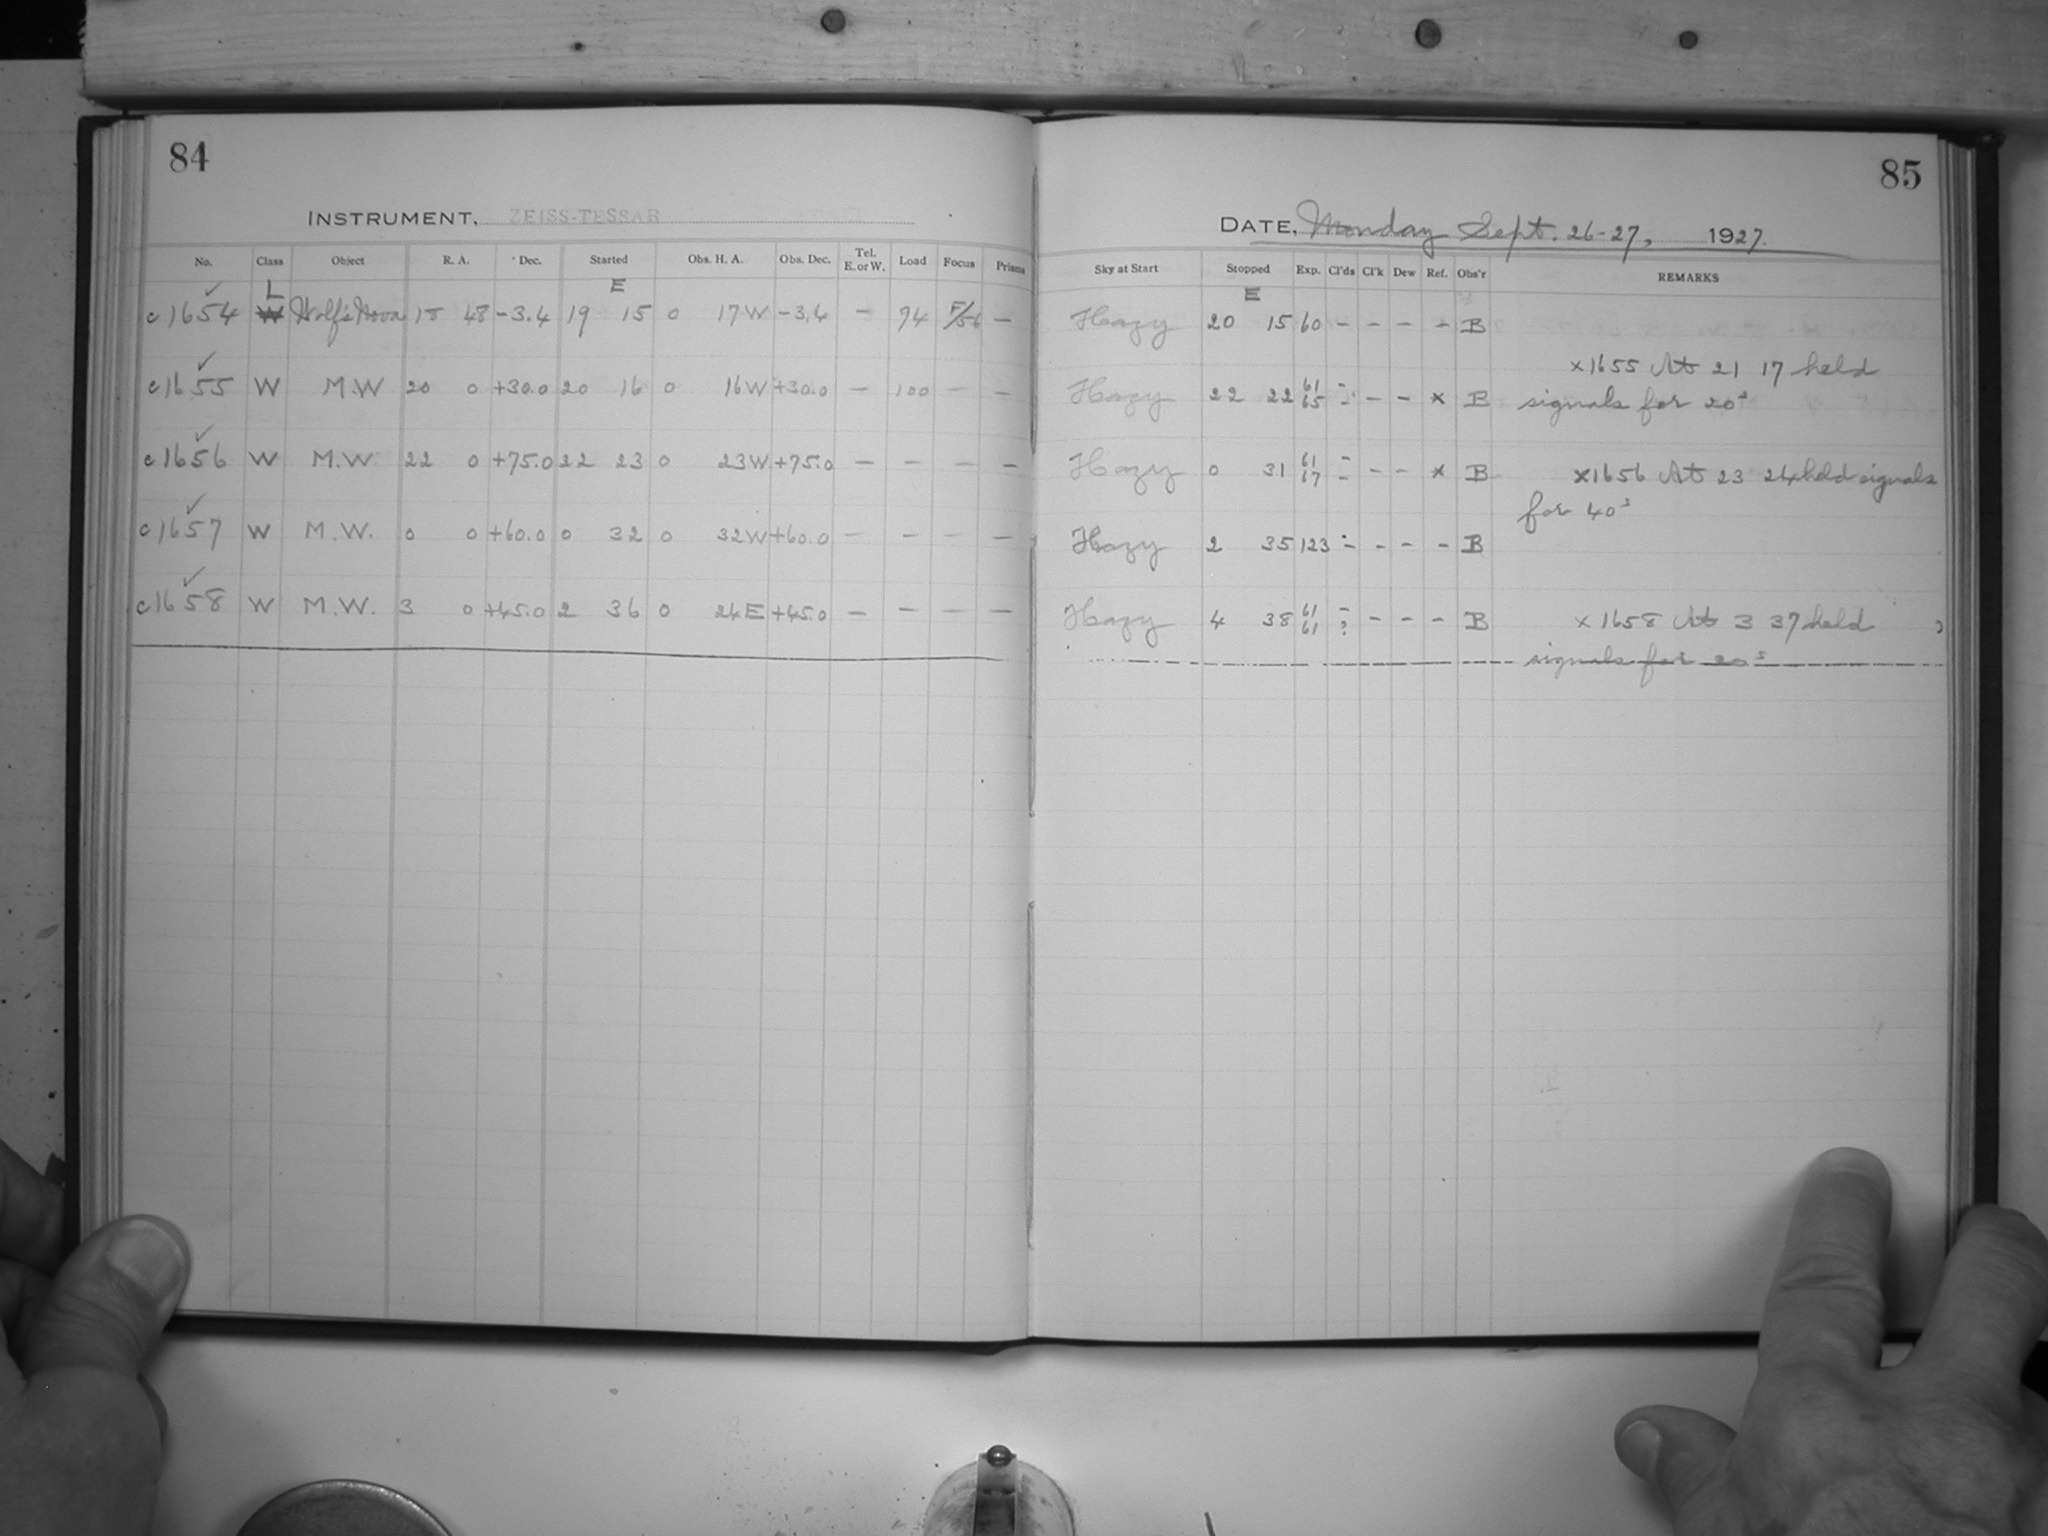 84
INSTRUMENT, ZEISS-TESSAR
No. Class Object R. A. Dec. Started Obs. H. A. Obs. Dec. Tel. E. or W. Load Focus Prisms
L E
c1654 W Wolf's Nova 18 48 -3.4 19 15 0 17W -3.4 — 94 F/56 —
c1655 W M.W 20 0 +30.0 20 16 0 16W +30.0 — 100 — —
c1656 W M.W 22 0 +75.0 22 23 0 23W +75.0 — — — —
c1657 W M.W. 0 0 +60.0 0 32 0 32W +60.0 — — — —
c1658 W M.W. 3 0 +45.0 2 36 0 24E +45.0 — — — —
85
DATE, Monday Sept. 26-27, 1927.
Sky at Start Stopped Exp. Cl'ds Cl'k Dew Ref. Obs'r REMARKS
E
Hazy 20 15 60 - - - - B
x1655 At 21 17 held
Hazy 22 22 61 65 - - - - x B signals for 20s
Hazy 0 31 61 67 - - - - x B x1656 At 23 24 held signals
for 40s
Hazy 2 35 123 - - - - B
Hazy 4 38 61 61 - ? - - - B x 1658 At 3 37 held
signals for 20s